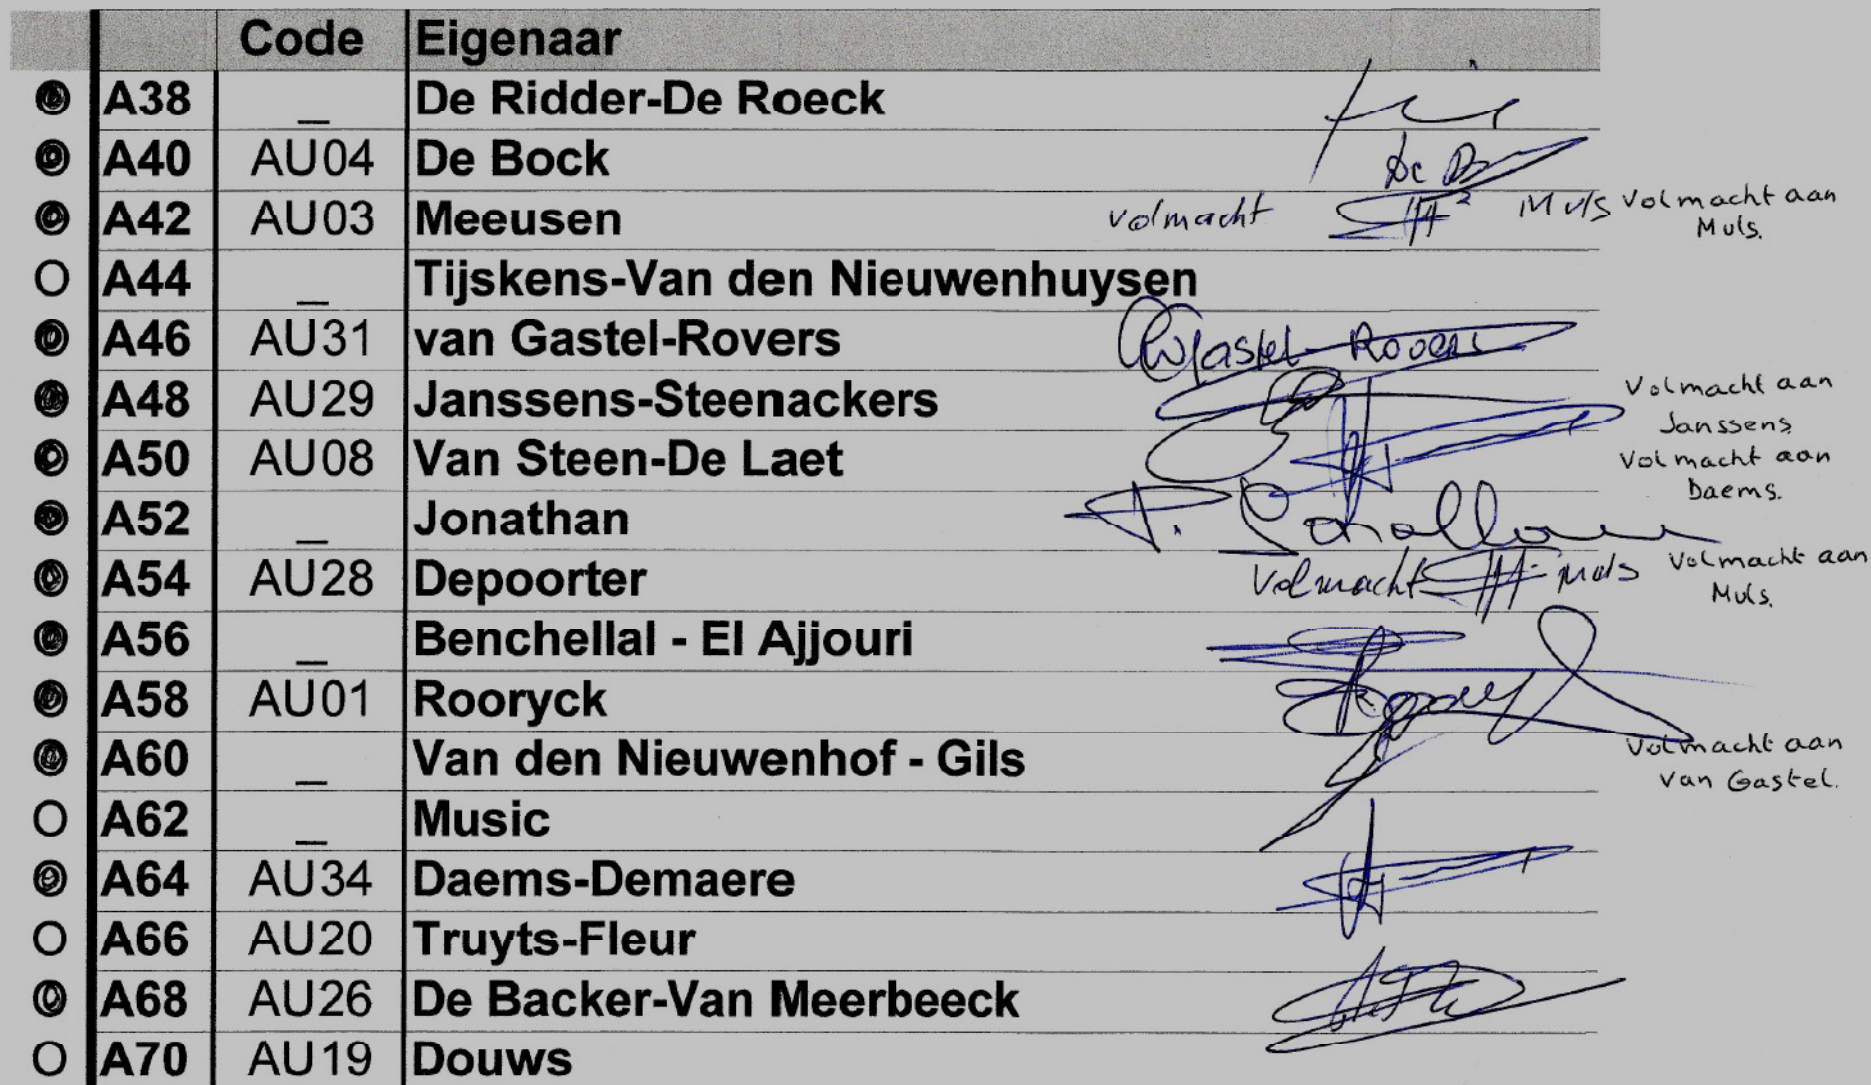 Code Eigenaar
A38 _ De Ridder-De Roeck
A40 AU04 De Bock De B
A42 AU03 Meeusen volmacht Muls Volmacht aan
Muls.
A44 _ Tijskens-Van den Nieuwenhuysen
A46 AU31 van Gastel-Rovers Gastel-Rovers
A48 AU29 Janssens-Steenackers Volmacht aan
Janssens
A50 AU08 Van Steen-De Laet Volmacht aan
Daems.
A52 _ Jonathan
A54 AU28 Depoorter Volmacht Muls Volmacht aan
Muls.
A56 _ Benchellal - El Ajjouri
A58 AU01 Rooryck
A60 _ Van den Nieuwenhof - Gils Volmacht aan
Van Gastel.
A62 _ Music
A64 AU34 Daems-Demaere
A66 AU20 Truyts-Fleur
A68 AU26 De Backer-Van Meerbeeck
A70 AU19 Douws